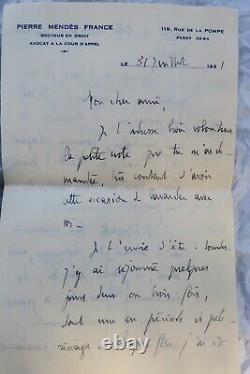 PIERRE MENDÈS FRANCE
DOCTEUR EN DROIT
AVOCAT A LA COUR D'APPEL
119, RUE DE LA POMPE
PASSY
LE 31 Juillet 1931
Mon cher ami,
Je t'adresse bien volontiers
la petite note que tu m'as de-
mandée, très content d'avoir
cette occasion de bavarder avec
toi.
Je t'envie d'être à
J'y ai séjourné quelques
jours deux ou trois fois,
dont une en période de pèle-
rinage j'ai